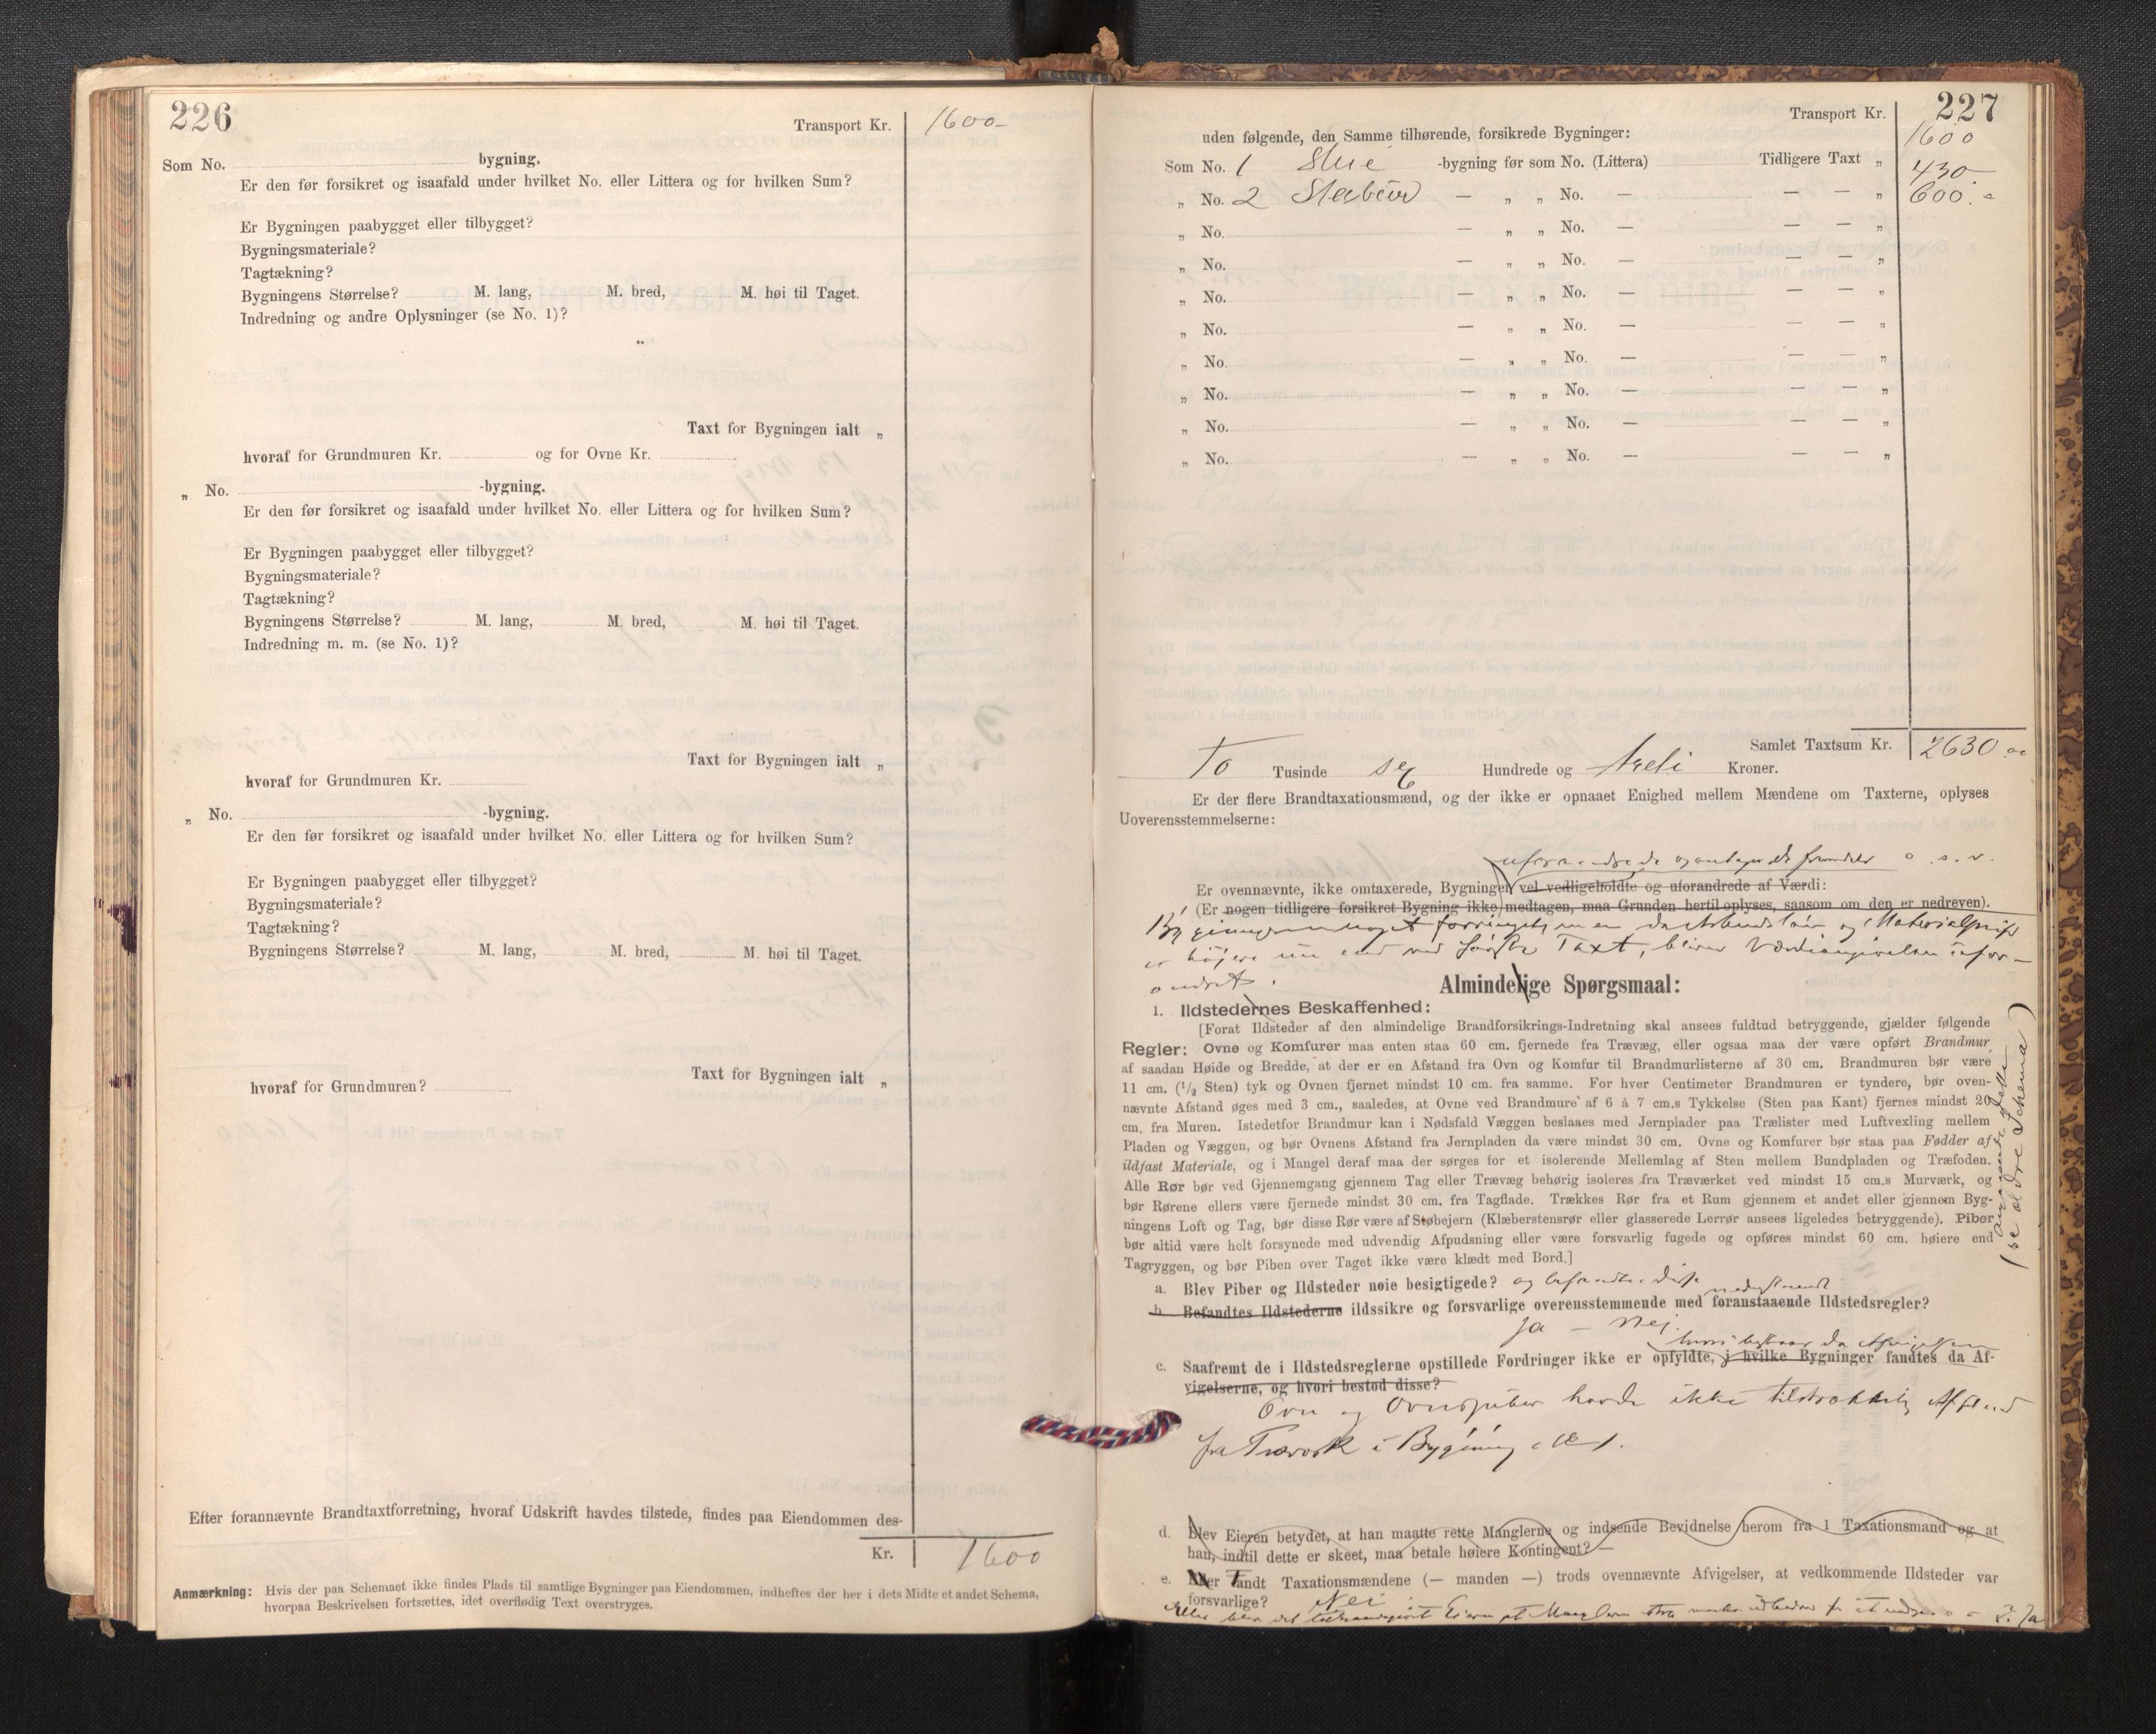 226
Transport Kr. 1600-
Som No. bygning.
Er den før forsikret og isaafald under hvilket No. eller Littera og for hvilken Sum?
Er Bygningen paabygget eller tilbygget?
Bygningsmateriale?
Tagtækning?
Bygningens Størrelse? M. lang, M. bred, M. høi til Taget.
Indredning og andre Oplysninger (se No. 1)?
Taxt for Bygningen ialt „
hvoraf for Grundmuren Kr. og for Ovne Kr.
„ No. -bygning.
Er den før forsikret og isaafald under hvilket No. eller Littera og for hvilken Sum?
Er Bygningen paabygget eller tilbygget?
Bygningsmateriale?
Tagtækning?
Bygningens Størrelse? M. lang, M. bred, M. høi til Taget.
Indredning m. m. (se No. 1)?
Taxt for Bygningen ialt „
hvoraf for Grundmuren Kr.
„ No. -bygning.
Er den før forsikret og isaafald under hvilket No. eller Littera og for hvilken Sum?
Er Bygningen paabygget eller tilbygget?
Bygningsmateriale?
Tagtækning?
Bygningens Størrelse? M. lang, M. bred, M. høi til Taget.
Taxt for Bygningen ialt „
hvoraf for Grundmuren?
Efter forannævnte Brandtaxtforretning, hvoraf Udskrift havdes tilstede, findes paa Eiendommen des-
Kr. 1600
Anmærkning: Hvis der paa Schemaet ikke findes Plads til samtlige Bygninger paa Eiendommen, indheftes der her i dets Midte et andet Schema,
hvorpaa Beskrivelsen fortsættes, idet overflødig Text overstryges.
227
Transport Kr. 1600
uden følgende, den Samme tilhørende, forsikrede Bygninger:
Som No. 1 Stue -bygning før som No. (Littera) Tidligere Taxt „ 430-
„ No. 2 Stabur — „ „ No. — — — „ 600.-
„ No. — „ „ No. — — — „
„ No. — „ „ No. — — — „
„ No. — „ „ No. — — — „
„ No. — „ „ No. — — — „
„ No. — „ „ No. — — — „
„ No. — „ „ No. — — — „
„ No. — „ „ No. — — — „
„ No. — „ „ No. — — — „
Samlet Taxtsum Kr. 2630.00
To Tusinde sex Hundrede og treti Kroner.
Er der flere Brandtaxationsmænd, og der ikke er opnaaet Enighed mellem Mændene om Taxterne, oplyses
Uoverensstemmelserne:
uforandrede og antages de fremdeles o. s. v.
Er ovennævnte, ikke omtaxerede, Bygninger vel vedligeholdte og uforandrede af Værdi:
(Er nogen tidligere forsikret Bygning ikke medtagen, maa Grunden hertil oplyses, saasom om den er nedreven).
Bygningerne noget forringet, men da Arbeidsløn og Materialpris
er høiere nu end ved første Taxt, bliver Værdiangivelsen ufor-
andret.
Almindelige Spørgsmaal:
1. Ildstedernes Beskaffenhed:
[Forat Ildsteder af den almindelige Brandforsikrings-Indretning skal ansees fuldtud betryggende, gjælder følgende
Regler: Ovne og Komfurer maa enten staa 60 cm. fjernede fra Trævæg, eller ogsaa maa der være opført Brandmur
af saadan Høide og Bredde, at der er en Afstand fra Ovn og Komfur til Brandmurlisterne af 30 cm. Brandmuren bør være
11 cm. (1/2 Sten) tyk og Ovnen fjernet mindst 10 cm. fra samme. For hver Centimeter Brandmuren er tyndere, bør oven-
nævnte Afstand øges med 3 cm., saaledes, at Ovne ved Brandmure af 6 à 7 cm.s Tykkelse (Sten paa Kant) fjernes mindst 20
cm. fra Muren. Istedetfor Brandmur kan i Nødsfald Væggen beslaaes med Jernplader paa Trælister med Luftvexling mellem
Pladen og Væggen, og bør Ovnens Afstand fra Jernpladen da være mindst 30 cm. Ovne og Komfurer bør staa paa Fødder af
ildfast Materiale, og i Mangel deraf maa der sørges for et isolerende Mellemlag af Sten mellem Bundpladen og Træfoden.
Alle Rør bør ved Gjennemgang gjennem Tag eller Trævæg behørig isoleres fra Træværket ved mindst 15 cm.s Murværk, og
bør Rørene ellers være fjernede mindst 30 cm. fra Tagflade. Trækkes Rør fra et Rum gjennem et andet eller gjennem Byg-
ningens Loft og Tag, bør disse Rør være af Støbejern (Klæberstensrør eller glasserede Lerrør ansees ligeledes betryggende). Piber
bør altid være helt forsynede med udvendig Afpudsning eller være forsvarlig fugede og opføres mindst 60 cm. høiere end
Tagryggen, og bør Piben over Taget ikke være klædt med Bord.]
(se ældre Schema)
a. Blev Piber og Ildsteder nøie besigtigede? og befandtes disse
b. Befandtes Ildstederne ildssikre og forsvarlige overensstemmende med foranstaaende Ildstedsregler?
Ja — Nei.
hvori bestaar da Afvigelsen
c. Saafremt de i Ildstedsreglerne opstillede Fordringer ikke er opfyldte, i hvilke Bygninger fandtes da Af-
vigelserne, og hvori bestod disse?
Ovn og Ovnspiber havde ikke tilstrækkelig Afstand
fra Træværk i Bygning No 1.
d. Blev Eieren betydet, at han maatte rette Manglerne og indsende Bevidnelse herom fra 1 Taxationsmand og at
han, indtil dette er skeet, maa betale høiere Kontingent? —
e. Eller fandt Taxationsmændene (— manden —) trods ovennævnte Afvigelser, at vedkommende Ildsteder var
forsvarlige? Nei
Eller blev det Eieren at Manglerne ? Ja